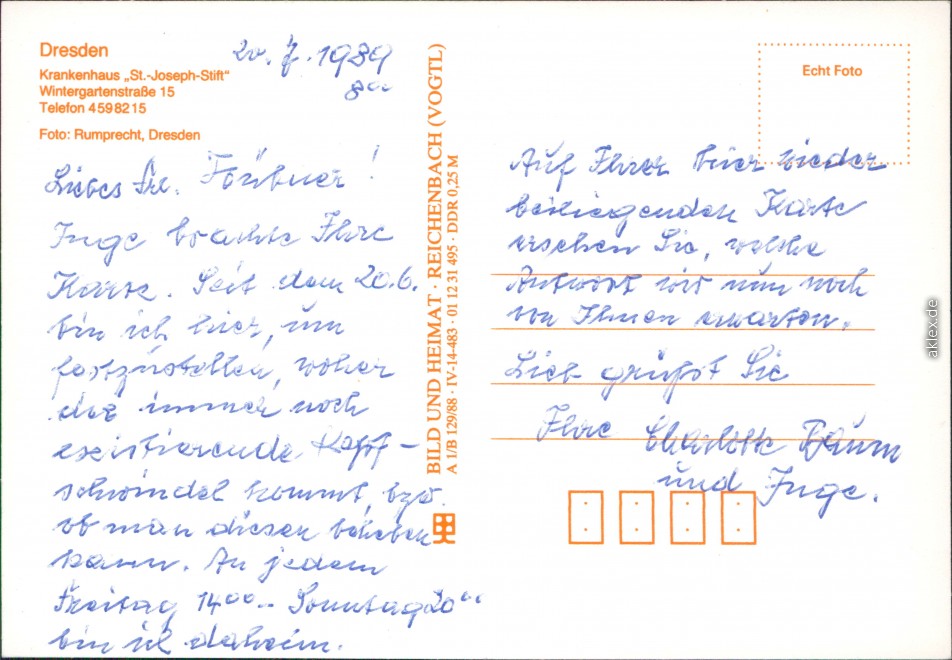 Dresden
Krankenhaus „St.-Joseph-Stift"
Wintergartenstraße 15
Telefon 4598215
Foto: Rumprecht, Dresden
20. 7. 1989
8⁰⁰
Liebes Frl.
Inge brachte Ihre
Karte. Seit dem 20.6.
bin ich hier, um
festzustellen, woher
der immer noch
existierende Kopf-
schwindel kommt, bzw.
ob man diesen beheben
kann. An jedem
Freitag 14⁰⁰ - Sonntag 20⁰⁰
bin ich daheim.
BILD UND HEIMAT · REICHENBACH (VOGTL)
A 1/B 129/88 · IV-14-483 · 01 12 31 495 · DDR 0,25 M
Echt Foto
Auf Ihrer hier wieder
beiliegenden Karte
ersehen Sie, welche
Antwort wir nun noch
von Ihnen erwarten.
Lieb grüßt Sie
Ihre Charlotte Baum
und Inge.
aklex.de